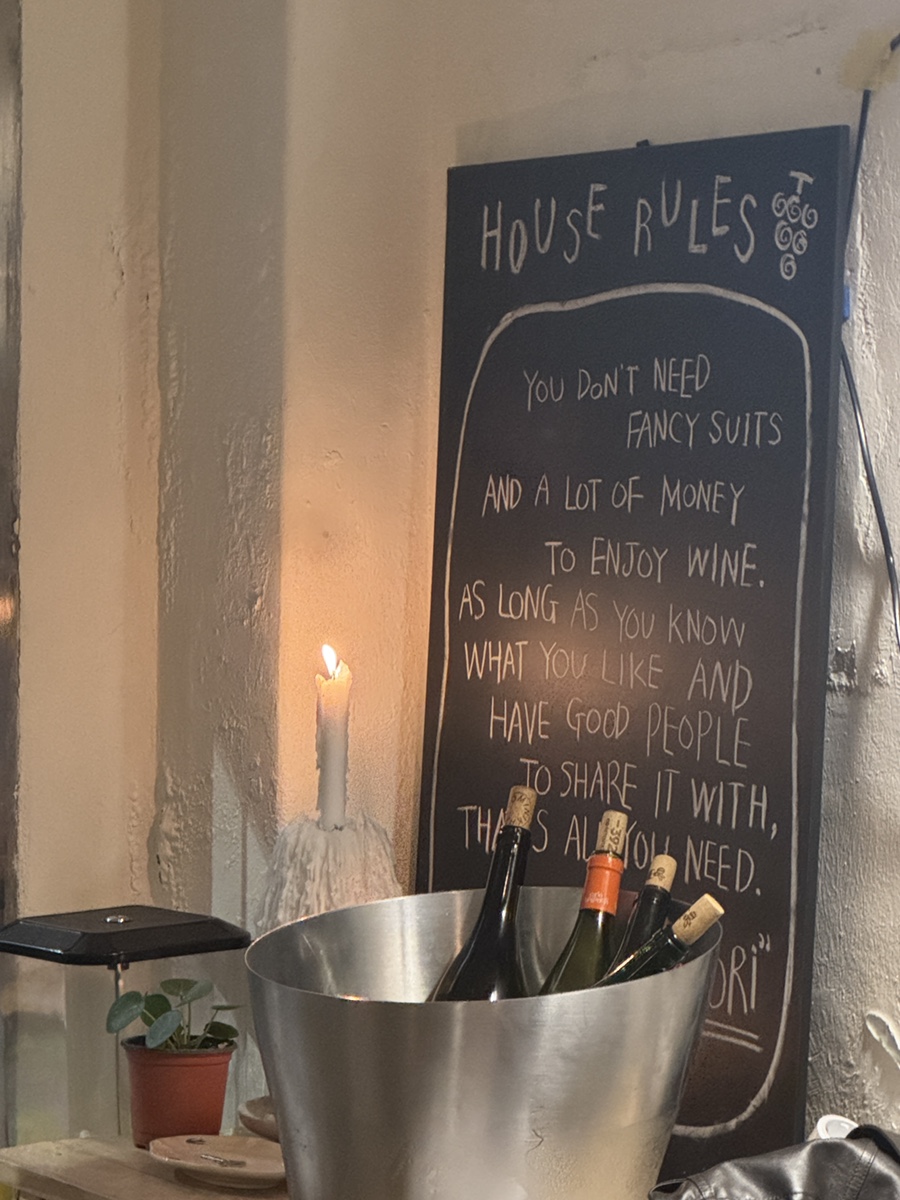 HOUSE RULES
YOU DON'T NEED
FANCY SUITS
AND A LOT OF MONEY
TO ENJOY WINE.
AS LONG AS YOU KNOW
WHAT YOU LIKE AND
HAVE GOOD PEOPLE
TO SHARE IT WITH,
THAT'S ALL YOU NEED.